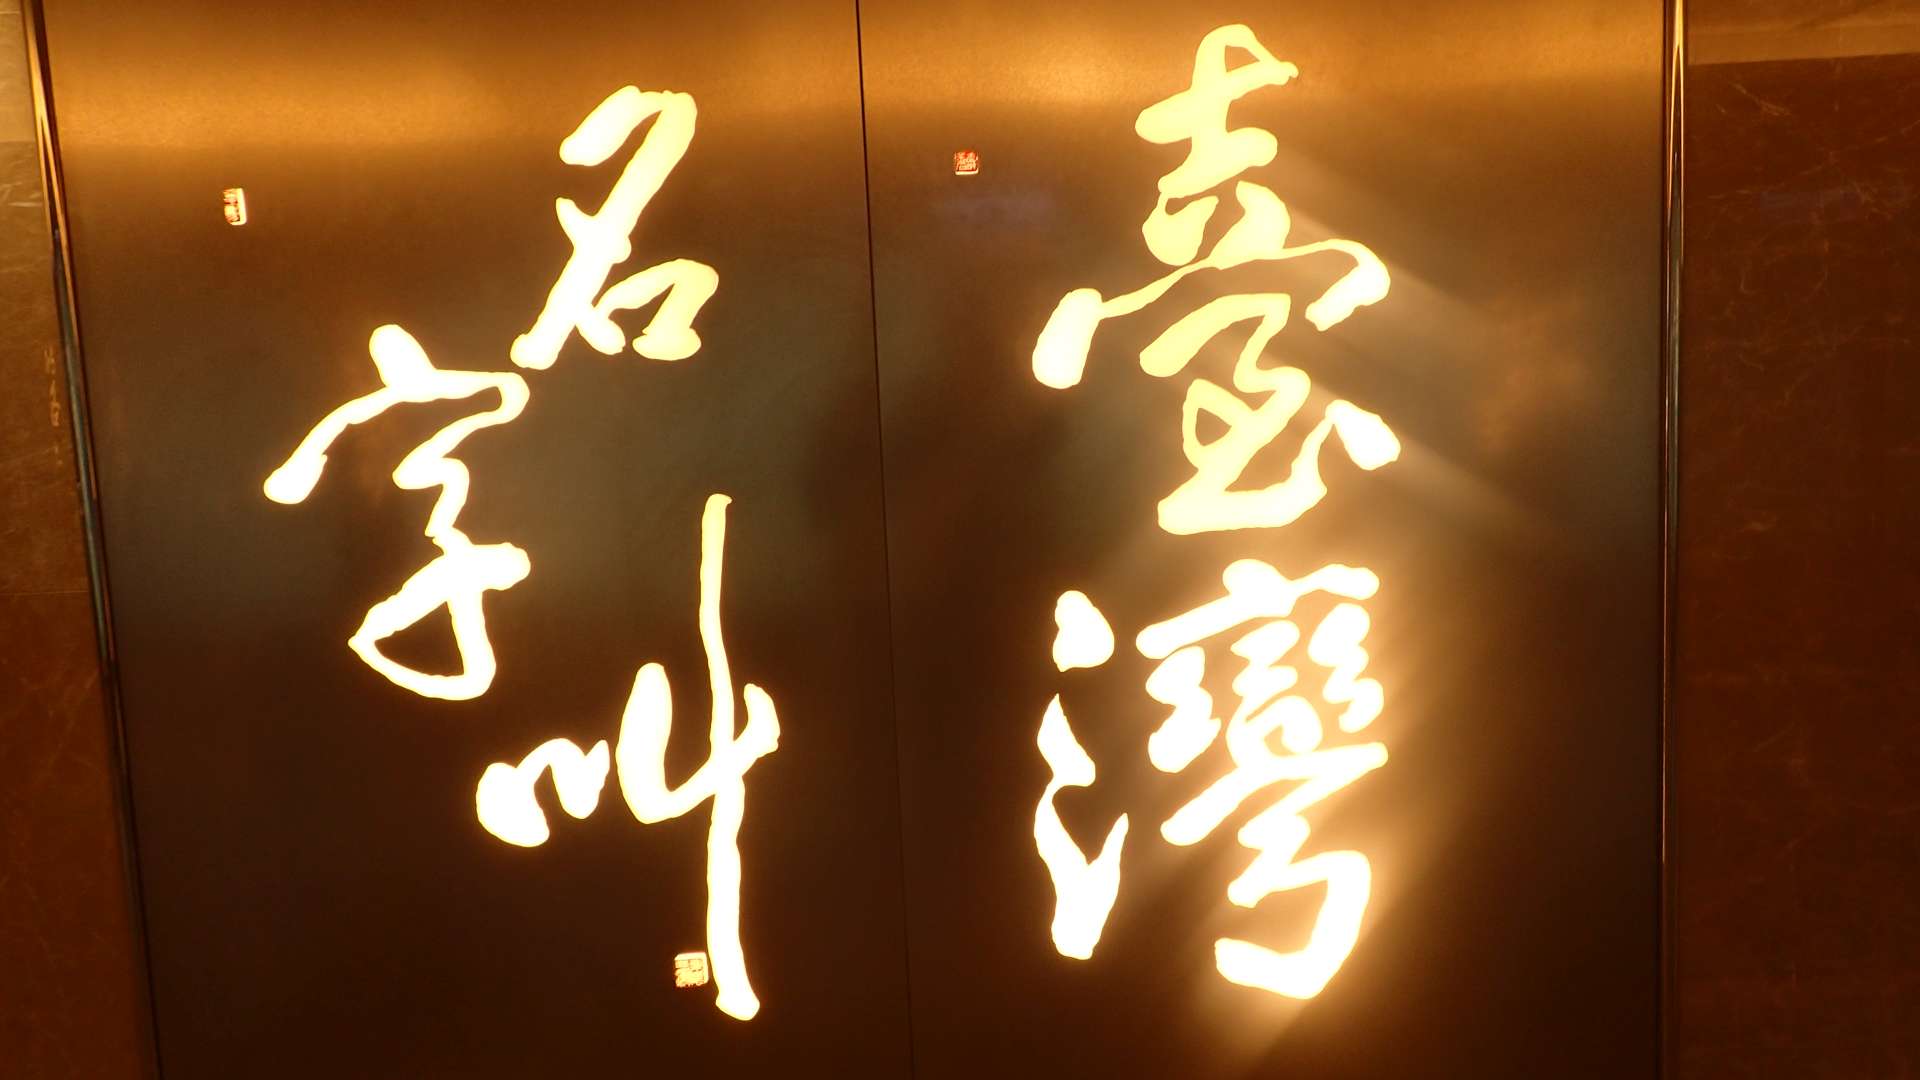 名字叫
臺灣